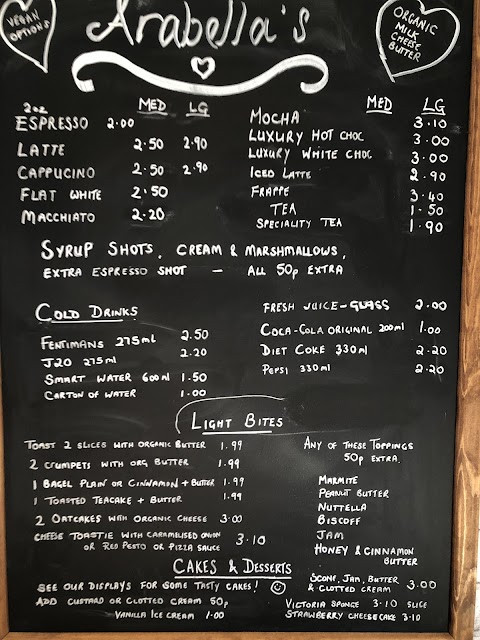 VEGAN
OPTIONS
Arabella's
ORGANIC
MILK
CHEESE
BUTTER
MED LG
2oz
ESPRESSO 2.00
LATTE 2.50 2.90
CAPPUCINO 2.50 2.90
FLAT WHITE 2.50
MACCHIATO 2.20
MED LG
MOCHA 3.10
LUXURY HOT CHOC 3.00
LUXURY WHITE CHOC 3.00
ICED LATTE 2.90
FRAPPE 3.40
TEA 1.50
SPECIALITY TEA 1.90
SYRUP SHOTS, CREAM & MARSHMALLOWS,
EXTRA ESPRESSO SHOT — ALL 50p EXTRA
COLD DRINKS
FENTIMANS 275ml 2.50
J2O 275ml 2.20
SMART WATER 600ml 1.50
CARTON OF WATER 1.00
FRESH JUICE - GLASS 2.00
COCA-COLA ORIGINAL 200ml 1.00
DIET COKE 330ml 2.20
PEPSI 330ml 2.20
LIGHT BITES
TOAST 2 SLICES WITH ORGANIC BUTTER 1.99
2 CRUMPETS WITH ORG BUTTER 1.99
1 BAGEL PLAIN OR CINNAMON + BUTTER 1.99
1 TOASTED TEACAKE + BUTTER 1.99
2 OATCAKES WITH ORGANIC CHEESE 3.00
CHEESE TOASTIE WITH CARAMELISED ONION
OR RED PESTO OR PIZZA SAUCE 3.10
ANY OF THESE TOPPINGS
50p EXTRA.
MARMITE
PEANUT BUTTER
NUTTELLA
BISCOFF
JAM
HONEY & CINNAMON
BUTTER
CAKES & DESSERTS
SEE OUR DISPLAYS FOR SOME TASTY CAKES!
ADD CUSTARD OR CLOTTED CREAM 50p
VANILLA ICE CREAM 1.00
SCONE, JAM, BUTTER
& CLOTTED CREAM 3.00
VICTORIA SPONGE 3.10 SLICE
STRAWBERRY CHEESECAKE 3.10